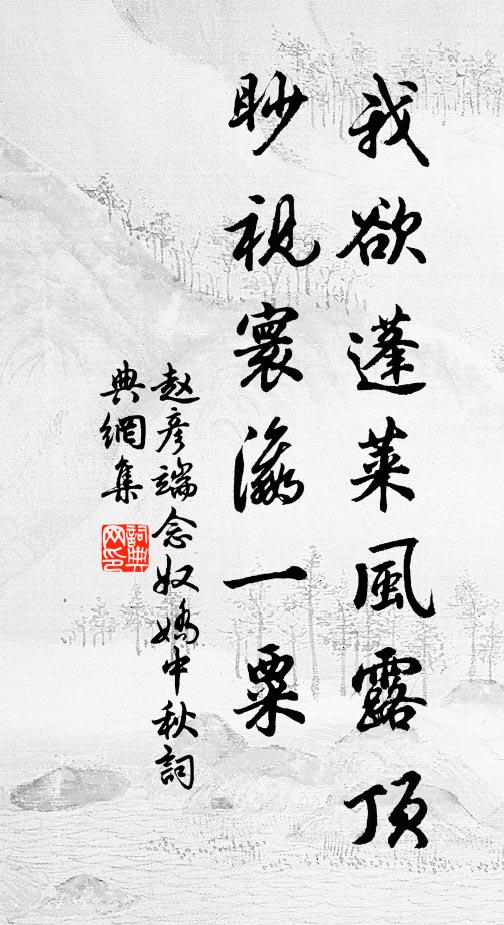 我欲蓬莱風露頂
眇視寰瀛一粟
赵彦端念奴嬌中秋詞
典網集
詞典
网印